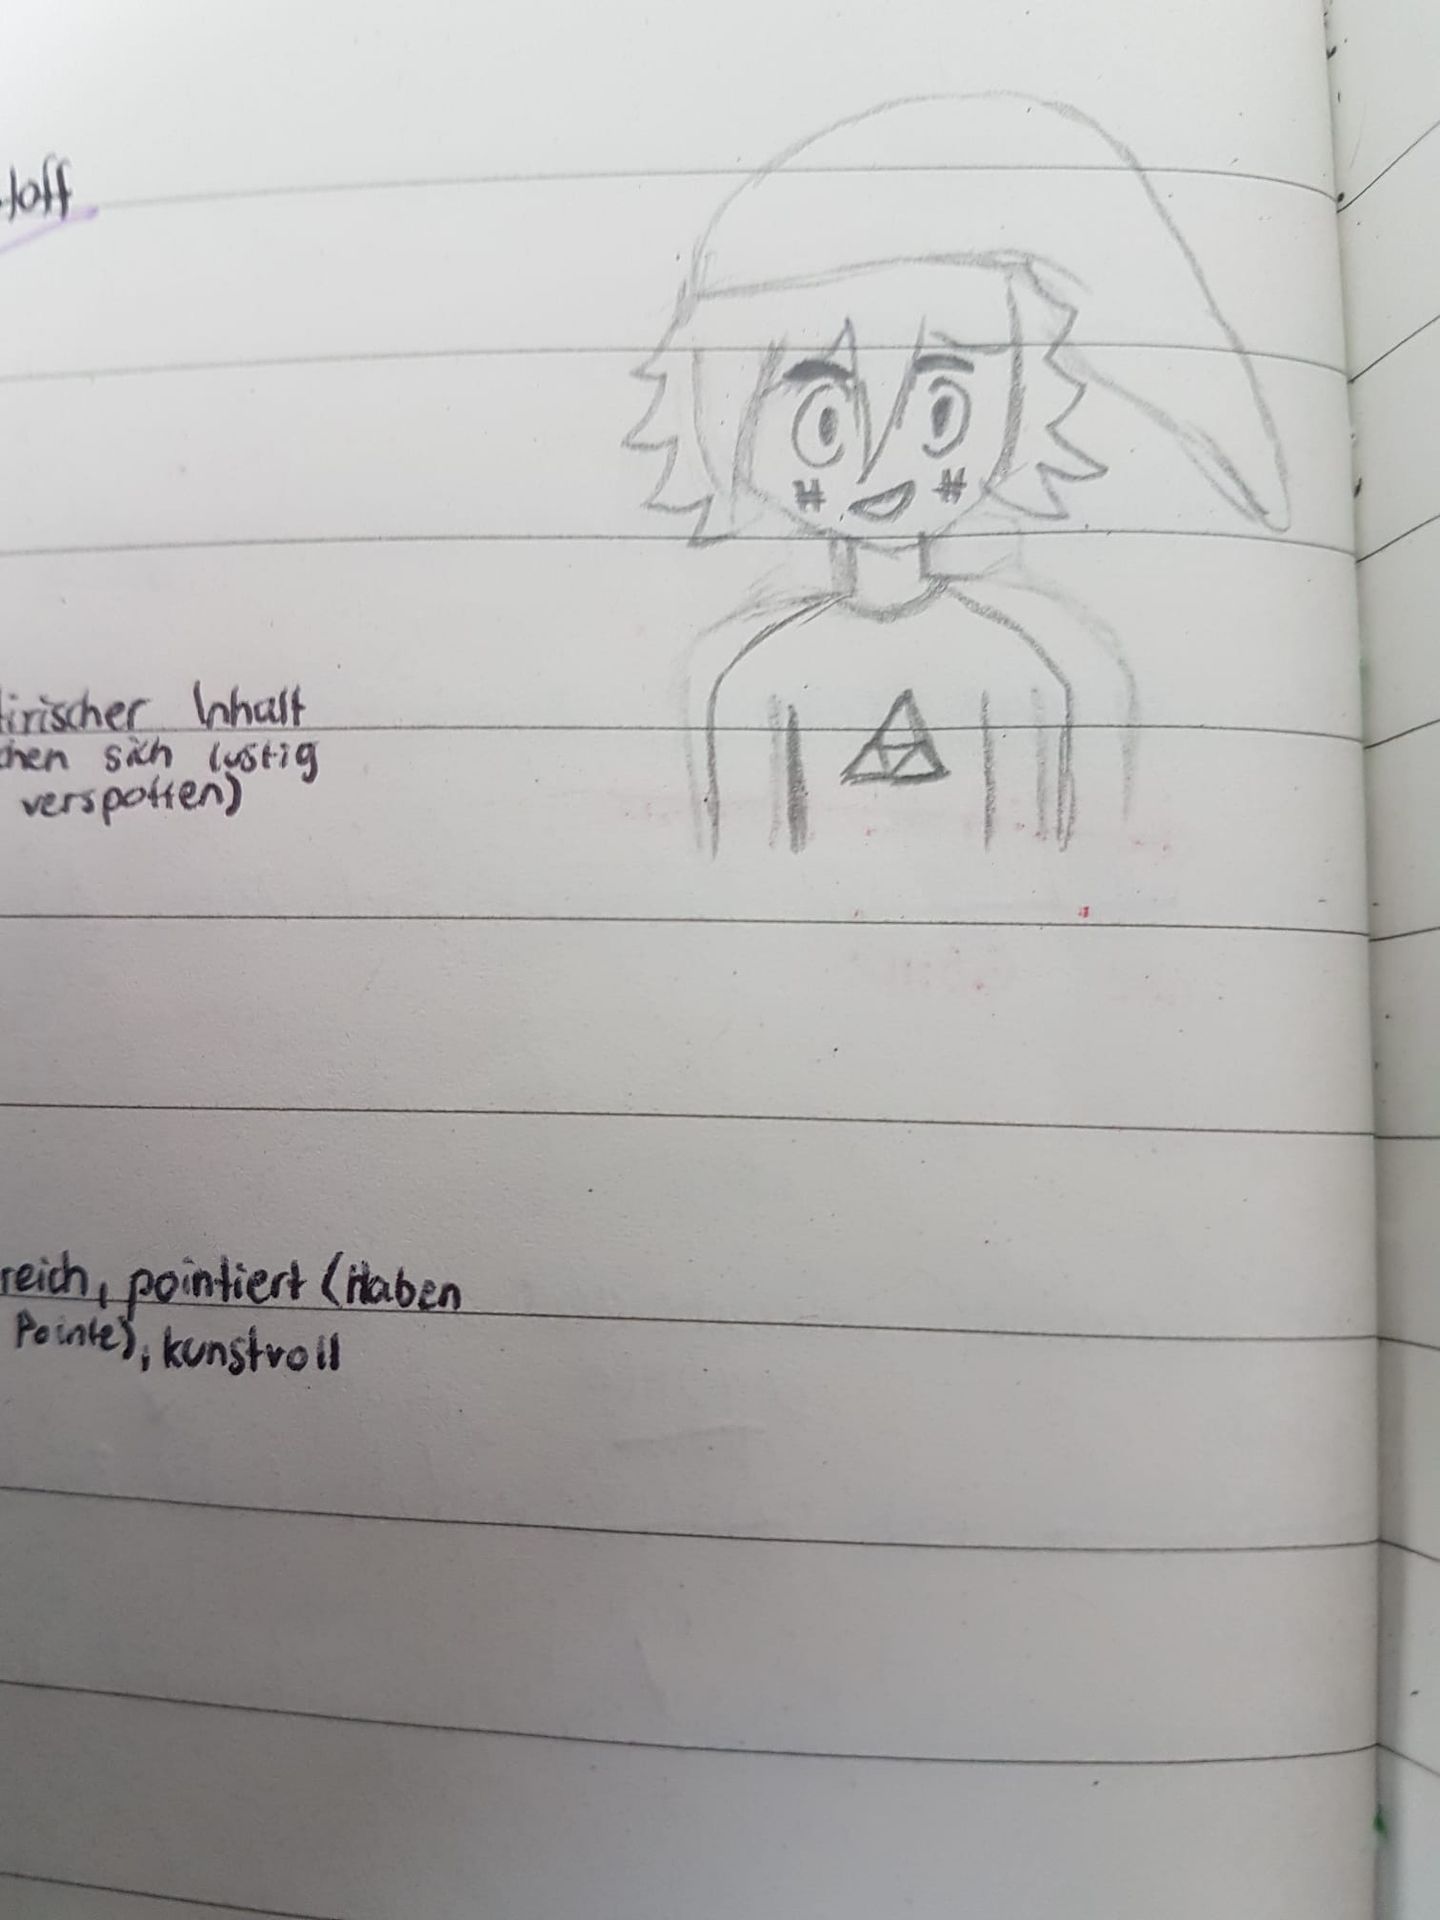 tirischer Inhalt
chen sich lustig
verspotten)
reich, pointiert (Haben
Pointe), kunstvoll